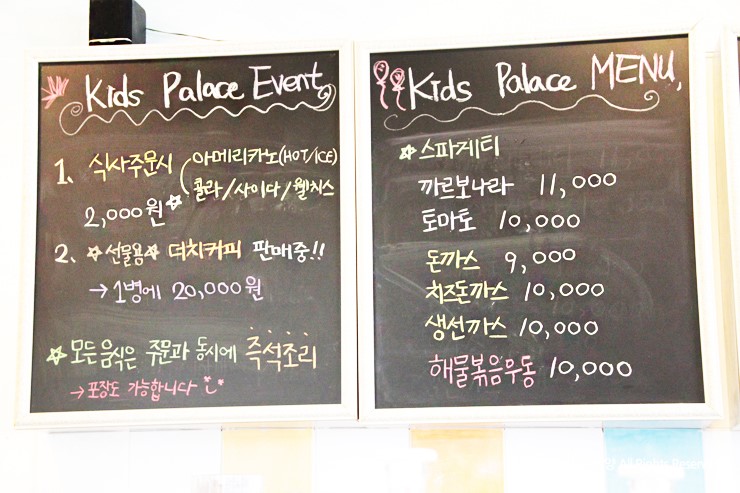 Kids Palace Event
1. 식사주문시 아메리카노(HOT/ICE)
콜라/사이다/웰치스
2,000원
2. 선물용 더치커피 판매중!!
→1병에 20,000원
모든음식은 주문과 동시에 즉석조리
→포장도 가능합니다
Kids Palace MENU,
스파게티
까르보나라 11,000
토마토 10,000
돈까스 9,000
치즈돈까스 10,000
생선까스 10,000
해물볶음우동 10,000